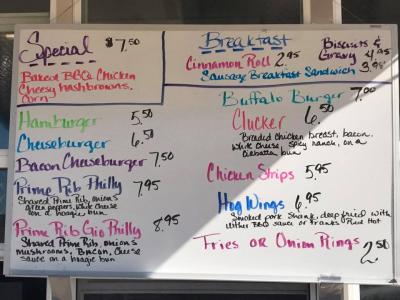 Special $7.50
Baked BBQ Chicken
Cheesy hashbrowns,
Corn
Breakfast
Cinnamon Roll 2.95
Biscuits &
Gravy 4.95
Sausage Breakfast Sandwich 3.95
Hamburger 5.50
Cheeseburger 6.50
Bacon Cheeseburger 7.50
Prime Rib Philly 7.95
Shaved Prime Rib, onions
green peppers, white cheese
on a hoagie bun
Prime Rib Gio Philly 8.95
Shaved Prime Rib, onions
mushrooms, Bacon, Cheese
sauce on a hoagie bun
Buffalo Burger 7.00
Clucker 6.50
Breaded chicken breast, bacon,
white cheese, spicy ranch, on a
ciabatta bun
Chicken Strips 5.95
Hog Wings 6.95
Smoked pork shank, deep fried with
either BBQ sauce or Franks Red Hot
Fries or Onion Rings
2.50